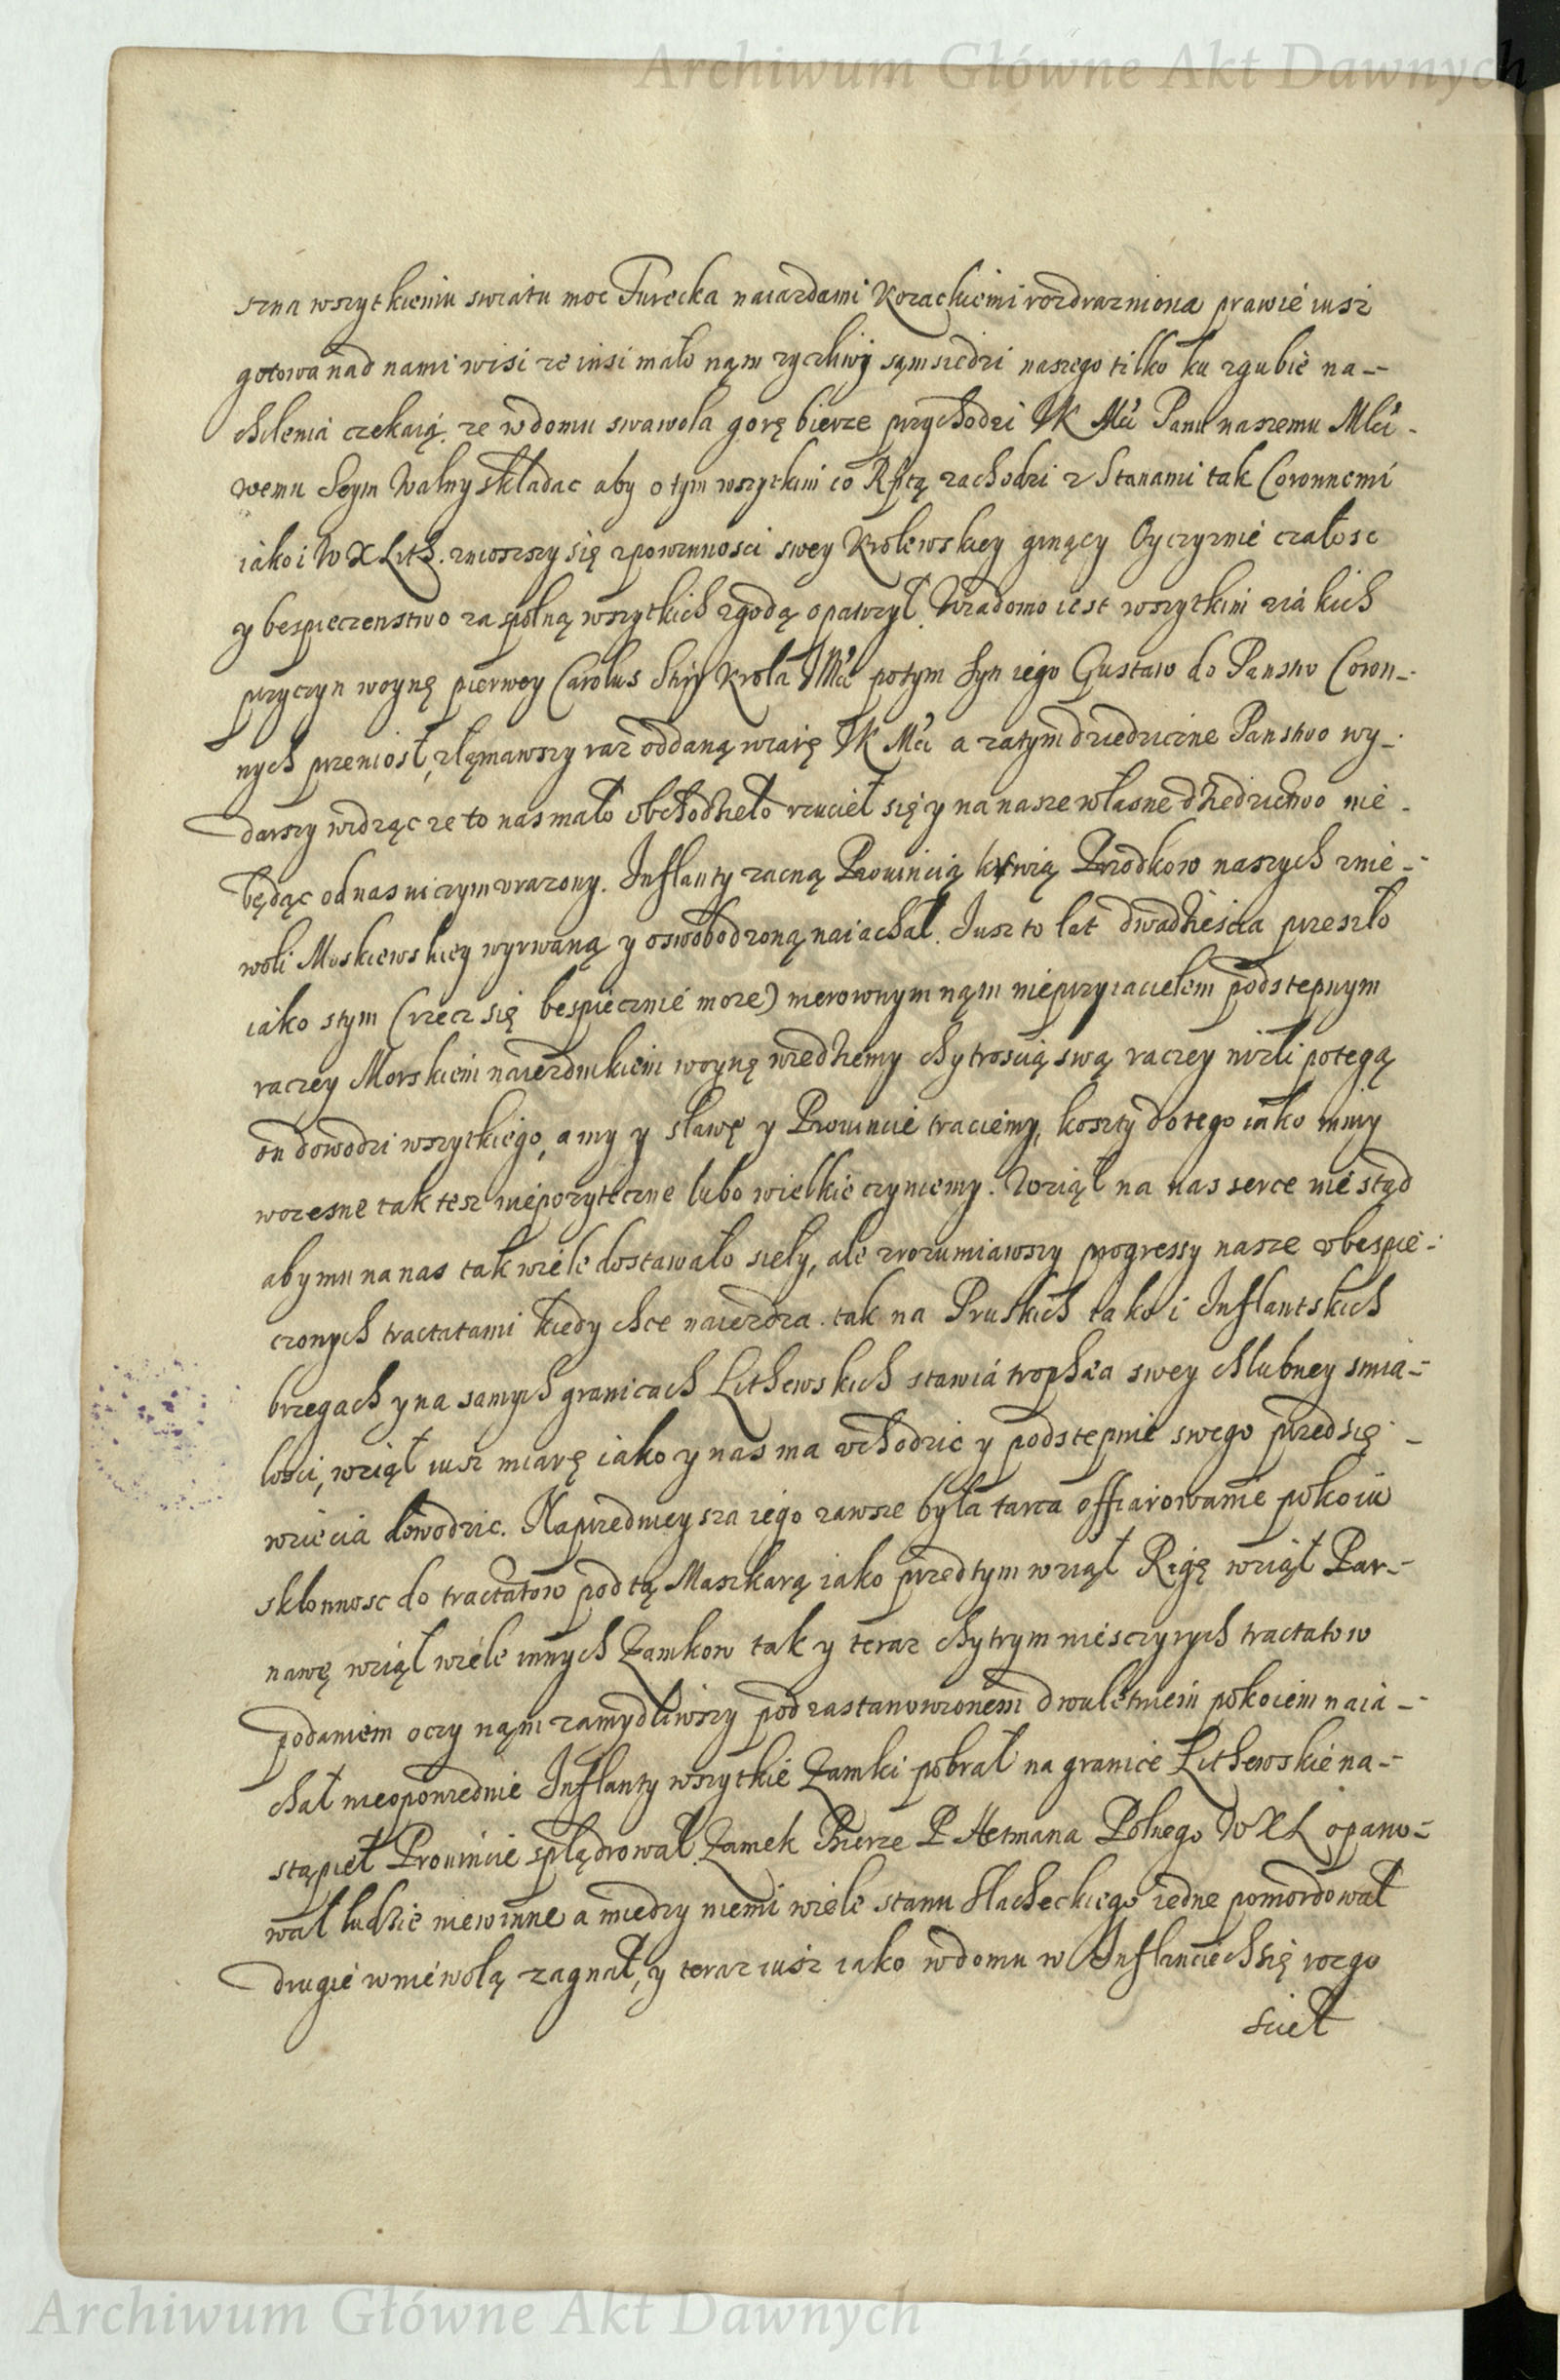 Archiwum Główne Akt Dawnych
szna wszytkiemu swiatu moc Turecka naiazdami Kozackiemi rozdrazniona prawie iusz
gotowa nad nami wisi ze insi mało nąm zyczliwy sąmsiedzi naszego tilko ku zgubie na-
chilenia czekaią, ze w domu swawola gorę bierze przychodzi JK Mci Panu naszemu Mlci-
wemu Seym Walny składac aby o tym wszytkim co Rptą zachodzi z Stanami tak Coronnemi
iako i W X Lith. zniozszy się zpowinnosci swey Krolewskiey ginący Oyczyznie czałosc
y bespieczenstwo za spolną wszytkich zgodą opatrzył. Wiadomo iest wszytkim ziakich
przyczyn woynę pierwey Carolus Stryi Krola JMci potym Syn iego Gustaw do Panstw Coron-
nych przeniosł, złąmawszy raz oddaną wiarę JK Mci a zatym dziedziczne Panstwo wy-
darszy widząc ze to nas mało obchodzieło rzucieł się y na nasze własne dziedzictwo nie-
będąc od nas niczym vrazony. Inflanty zacną Prouincią krwią Przodkow naszych znie-
woli Moskiewskiey wyrwaną y oswobodzoną naiachał. Jusz to lat dwadzieścia przeszło
iako stym (rzecz się bespiecznie moze) nierownym nąm nieprzyiacielem podstepnym
raczey Morskiem naiezdnikiem woynę wiedziemy chytroscią swą raczey nizli potegą
on dowodzi wszytkiego, a my y sławę y Prouincie traciemy, koszty do tego iako mniy
wczesne tak tesz niepozyteczne lubo wielkie czyniemy. Wziął na nas serce nie stąd
aby mu na nas tak wiele dostawało sieły, ale zrozumiawszy progressy nasze vbespie-
czonych tractatami kiedy chce naiezdza. tak na Pruskich iako i Inflantskich
brzegach y na samych granicach Lithewskich stawia trophæa swey chlubney smia-
łosci, wziął iusz miarę iako y nas ma vchodzic y podstepnie swego przedsię-
wziecia dowodzic. Naprzednieysza iego zawsze była tarcza offiarowanie pokoiu
skłonnosc do tractatow pod tą Maszkarą iako przed tym wziął Rigę wziął Par-
nawę wziął wiele innych Zamkow tak y teraz chytrym niesczyrych tractatow
podaniem oczy nąm zamydliwszy pod zastanowionem dwuletniem pokoiem naia-
chał nieopowiednie Inflanty wszytkie Zamki pobrał na granice Lithewskie na-
stąpieł Prouincie splądrował Zamek Bierze P Hetmana Polnego W X L opano-
wał ludzie niewinne a miedzy niemi wiele stanu slacheckiego iedne pomordował
drugie w niewolą zagnał, y teraz iusz iako w domu w Inflanciech się rozgo
scieł
Archiwum Główne Akt Dawnych